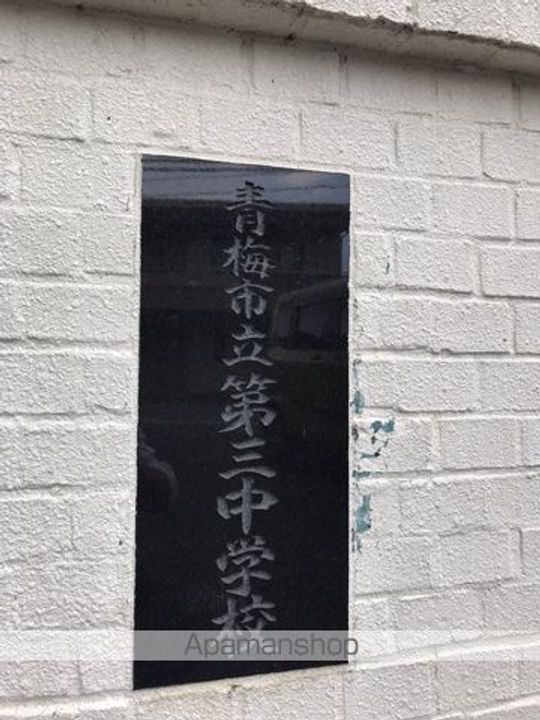 青梅市立第三中学校
Apamanshop